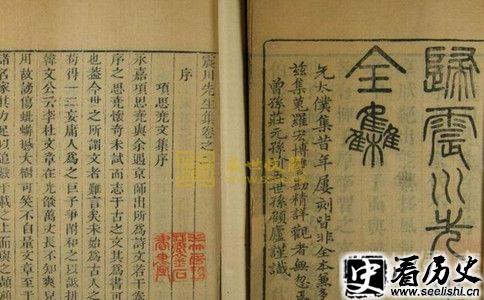 歸震川先
全集
先太僕集昔年屢刻皆非全本兼多
茲集蒐羅宏博讐勘精詳觀者無忽焉
曾孫莊元孫玠五世孫顧廬謹識
震川先生集卷之
序
項思堯文集序
永嘉項思堯與余遇京師出所爲詩文若
序之思堯懷奇未試而志于古之文其爲書可
也蓋今世之所謂文者難言矣未始爲古人之
苟得一二妄庸人爲之巨子爭附和之以詆排
韓文公云李杜文章在光燄萬丈長不
用故謗傷蚍蜉撼大樹可笑不自量文章至
諸名家其力足以追數千載之上而與之頡頏
史 看历史
www.seelishi.com